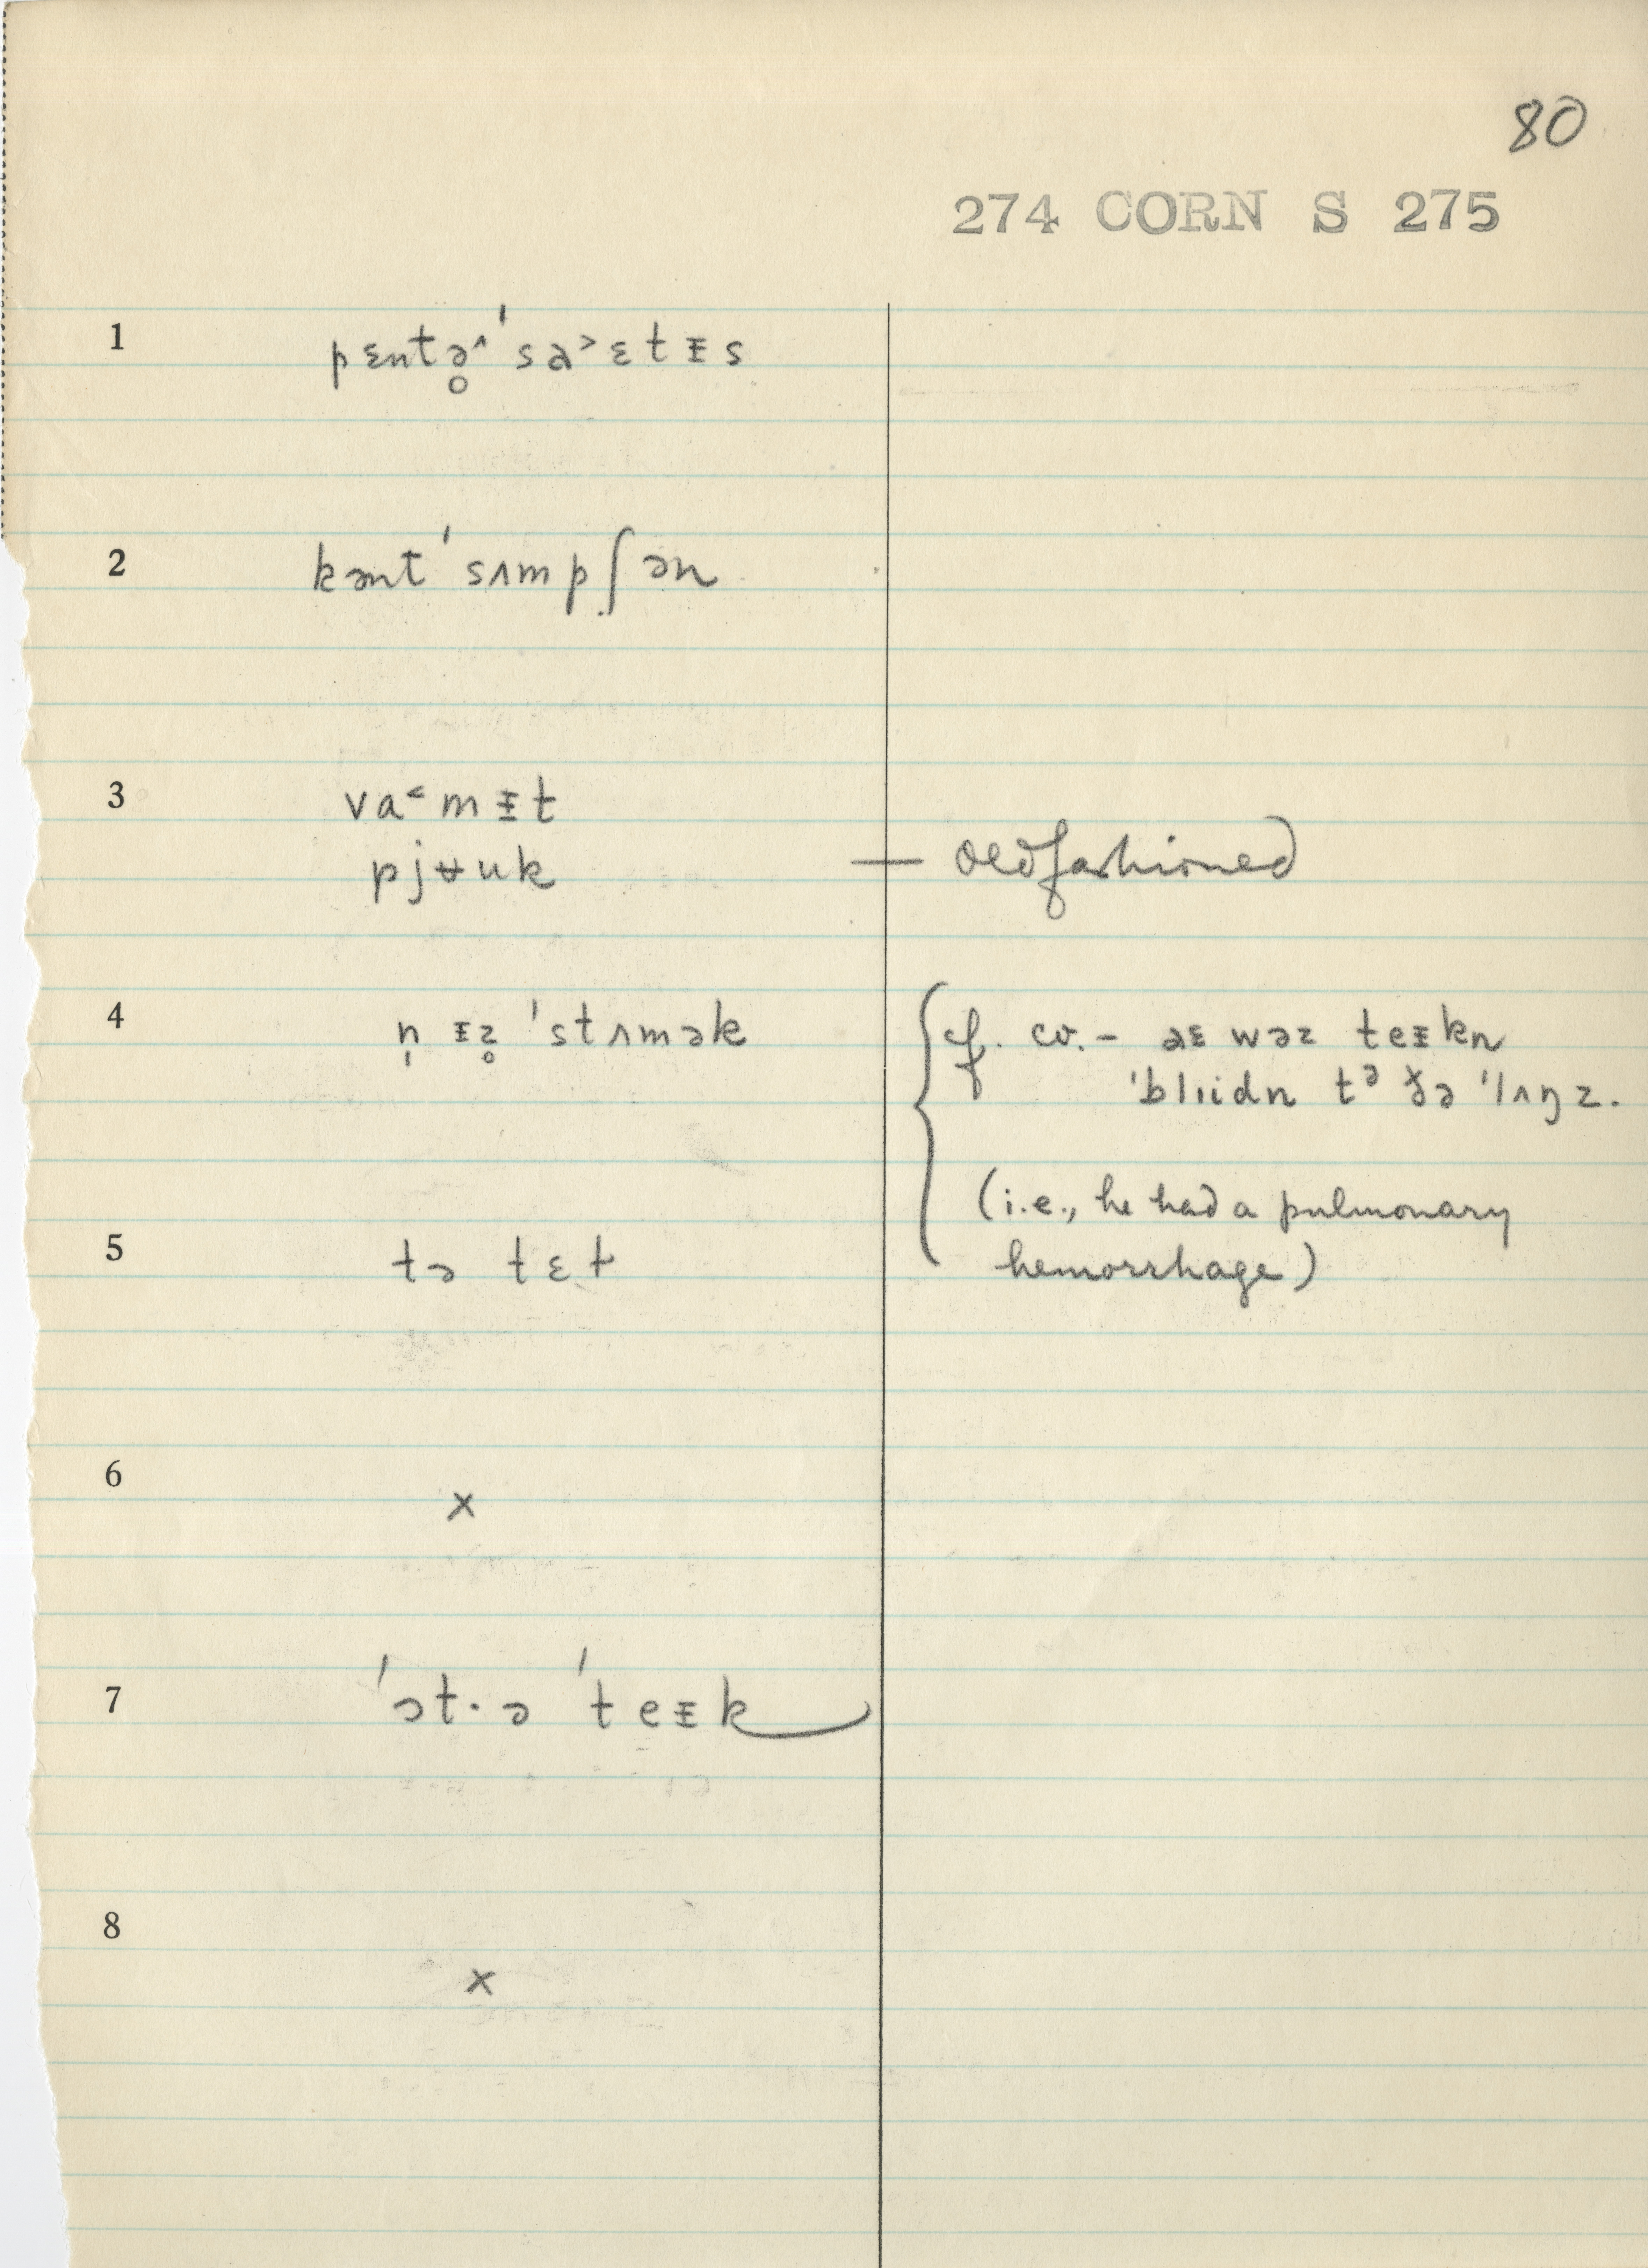 80
274 CORN S 275
1 pɛntə̥˄ˈsa˃ɛtɪ̵s
2 kəntˈsʌmpʃən
3 va˂mɪ̵t
pjʉuk — oldfashioned
4 n̩ ɪ̵z̥ ˈstʌmək
cf. cv. – aɛ wəz teɪ̵kn
ˈblɪidn tᵊ ðə ˈlʌŋz.
(i.e., he had a pulmonary
5 tə tɛt
hemorrhage)
6 x
7 ˈɔt·ə ˈteɪ̵k
8 x